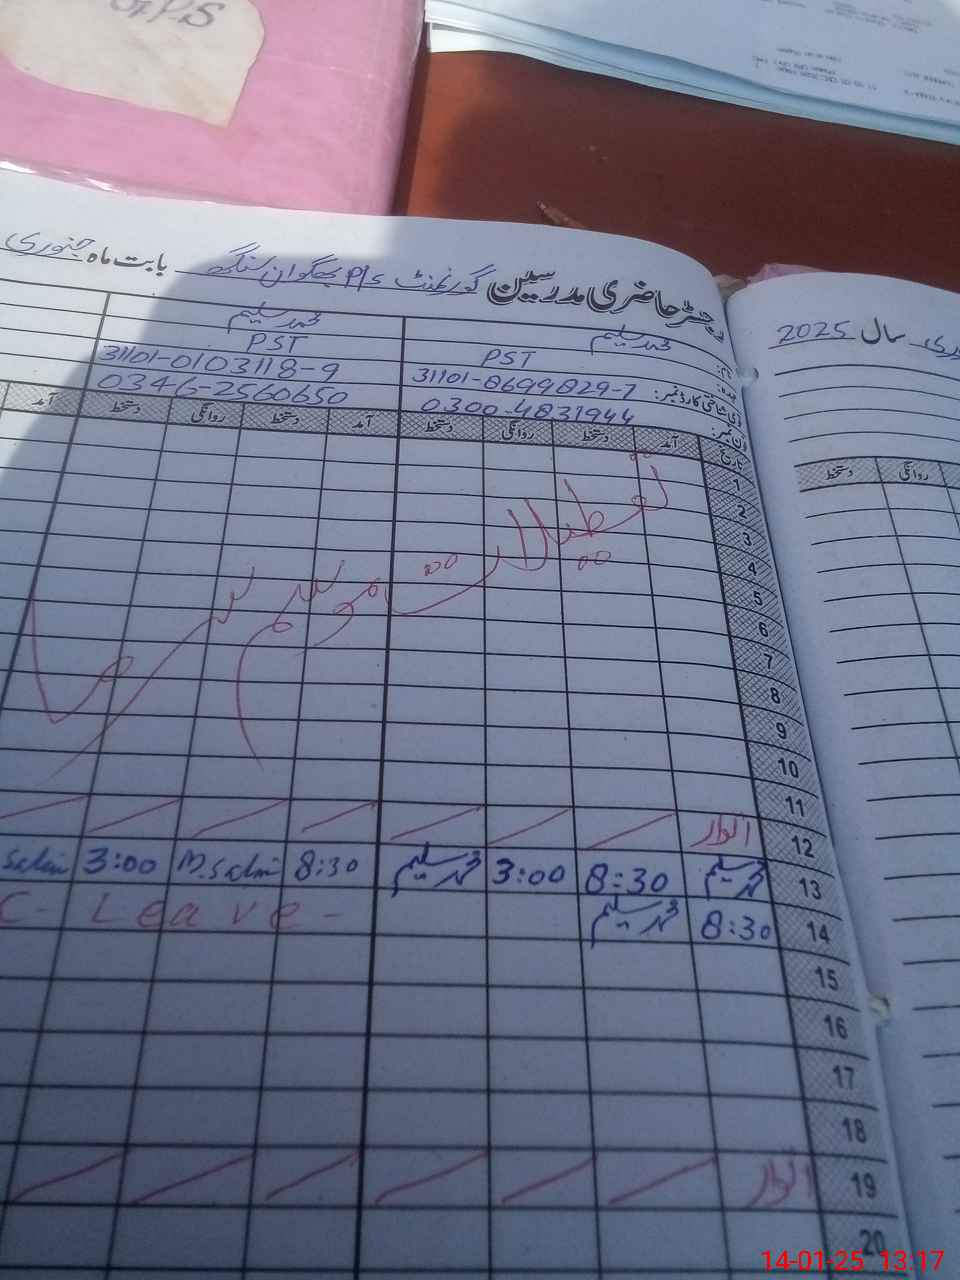 G.P.S
رجسٹر حاضری مدرسین گورنمنٹ P/S بھگوان سنگھ بابت ماہ جنوری
سال 2025
نام: محمد سلیم محمد سلیم
عہدہ: PST PST
قومی شناختی کارڈ نمبر: 31101-8699829-7 31101-0103118-9
فون نمبر: 0300-4831944 0346-2560650
تاریخ آمد دستخط روانگی دستخط آمد دستخط روانگی دستخط آمد
روانگی دستخط
1
2
3
4
5
6
7
8
9
10
11
تعطیلات موسم سرما
12 اتوار
13 محمد سلیم 8:30 3:00 محمد سلیم 8:30 M.Salim 3:00 Salim
14 8:30 محمد سلیم C- Leave-
15
16
17
18
19 اتوار
20
14-01-25 13:17